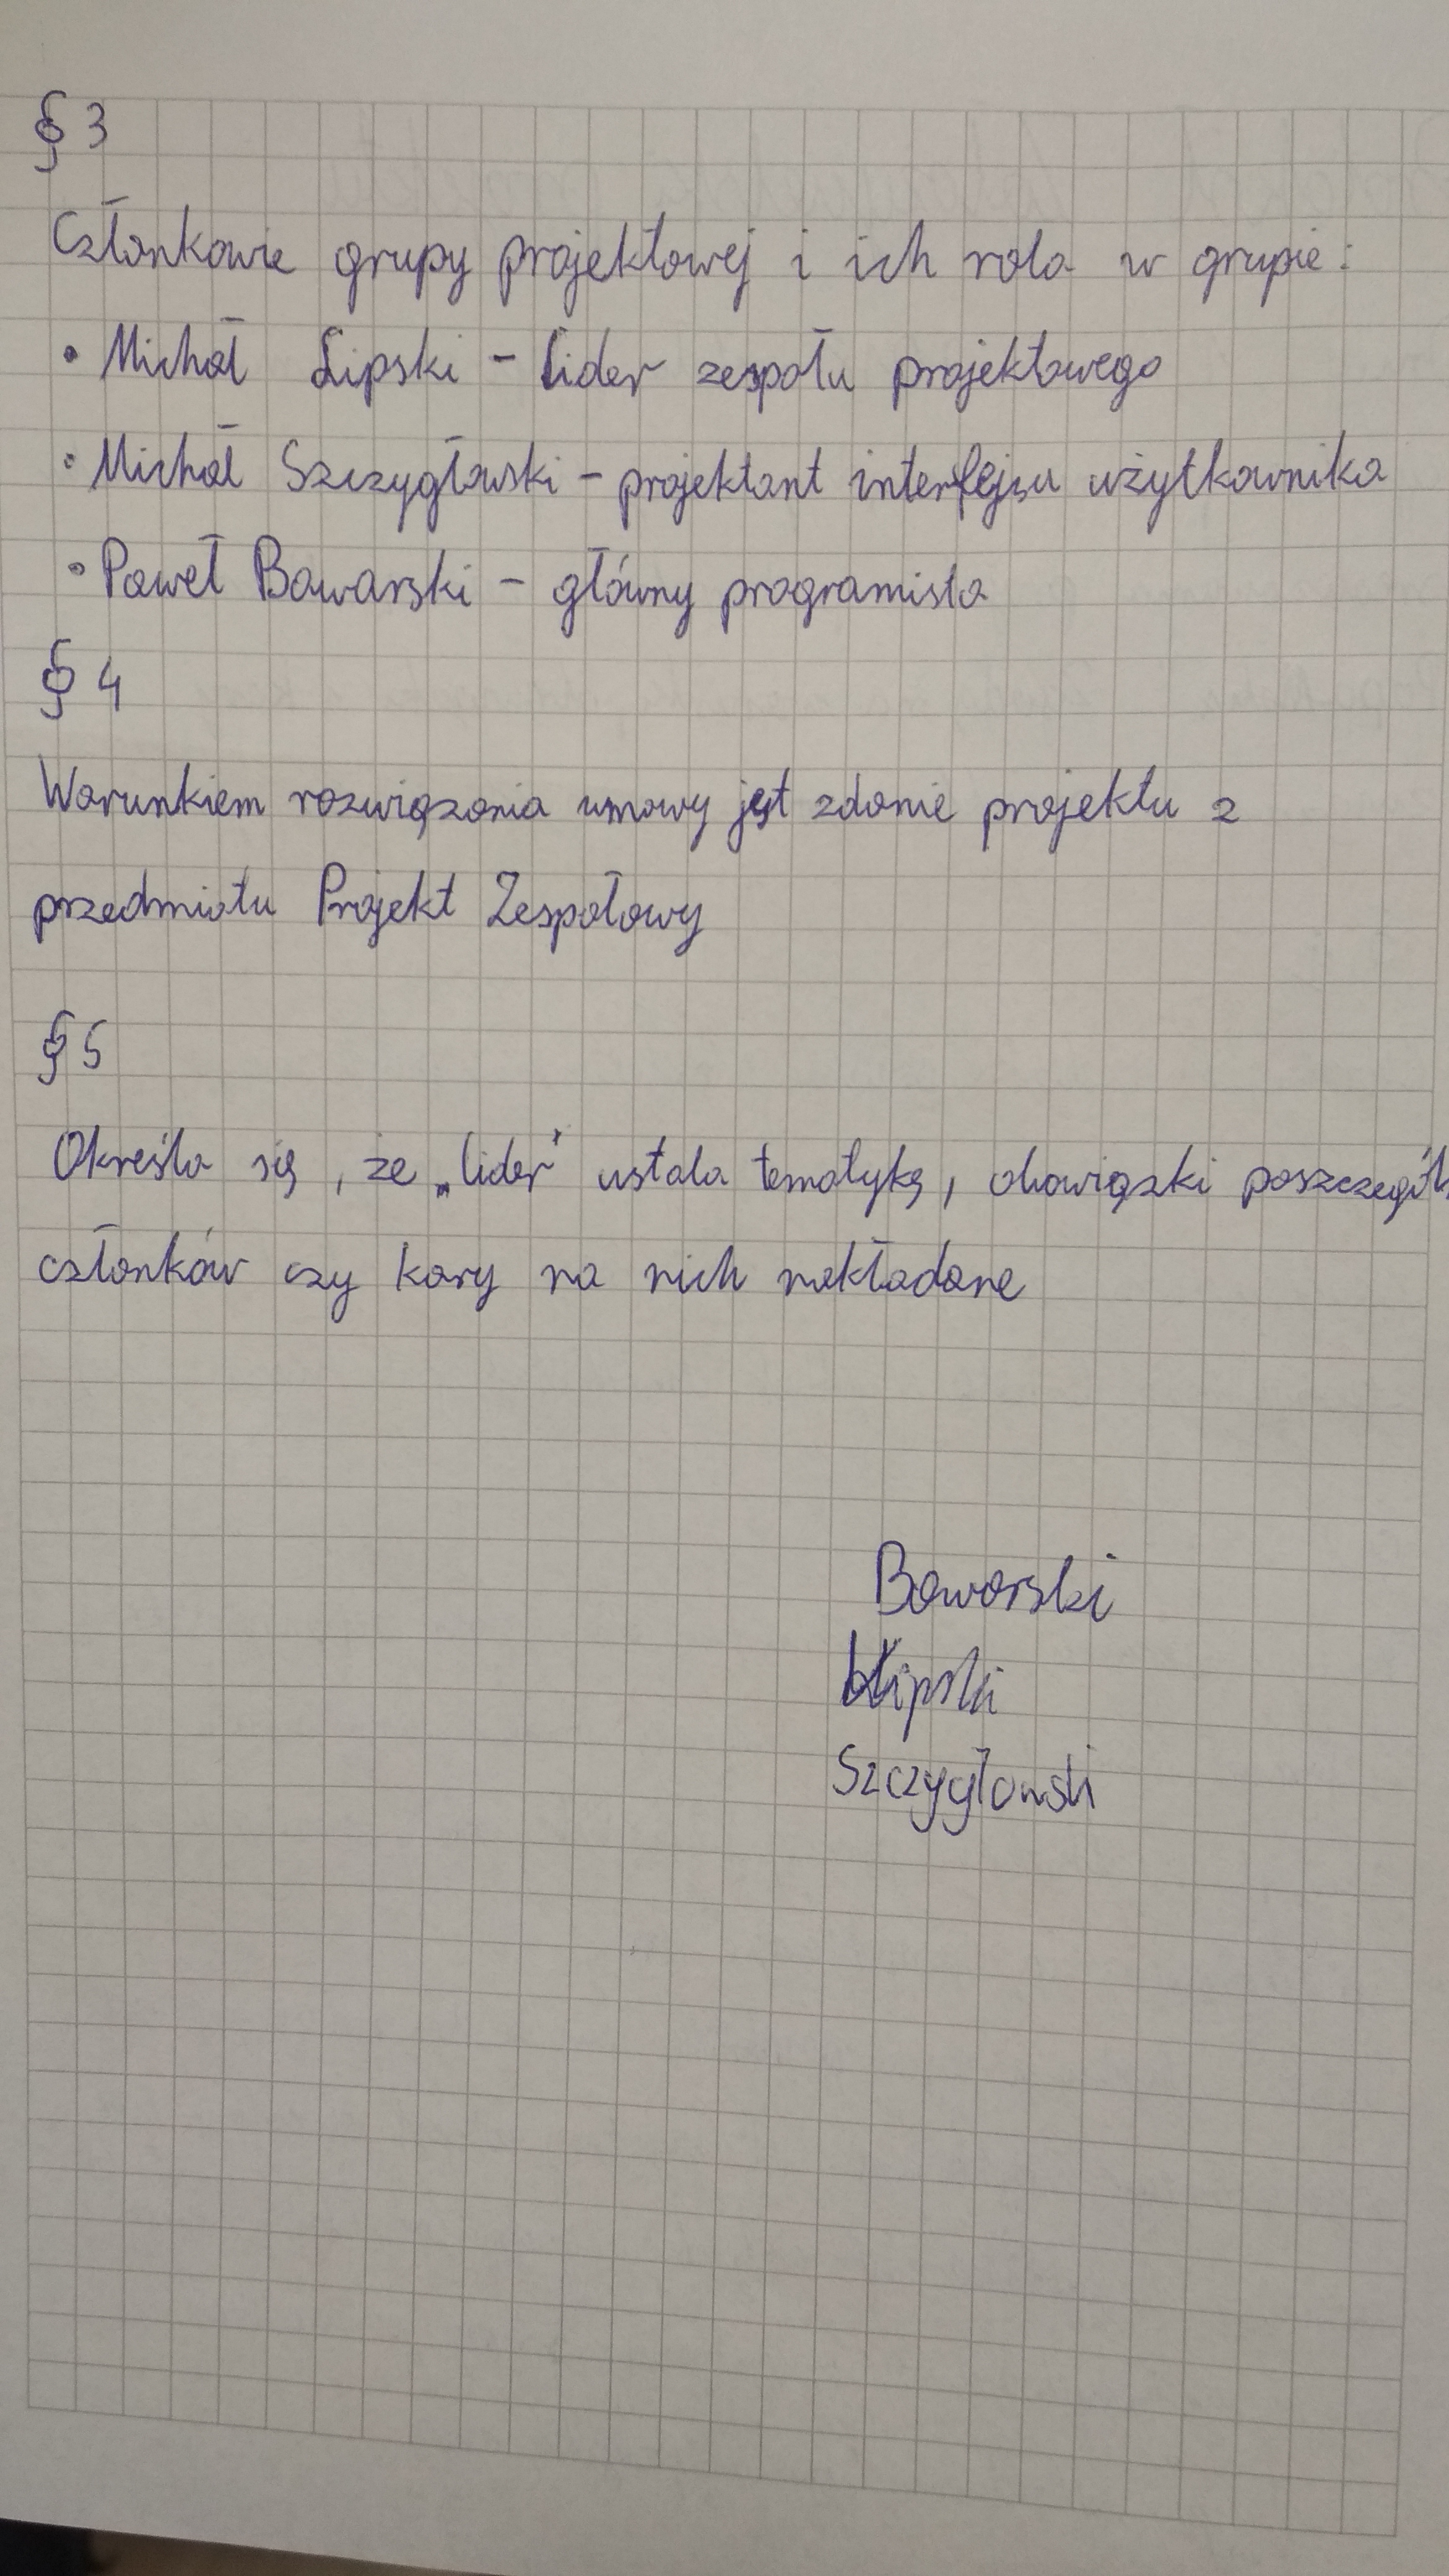 § 3
Członkowie grupy projektowej i ich rola w grupie:
• Michał Lipski - Lider zespołu projektowego
• Michał Szczygłowski - projektant interfejsu użytkownika
• Paweł Bawarski - główny programista
§ 4
Warunkiem rozwiązania umowy jest zdanie projektu z
przedmiotu Projekt Zespołowy
§ 5
Określa się, że „lider" ustala tematykę, obowiązki
członków czy kary na nich nakładane
Bawarski
Lipski
Szczygłowski